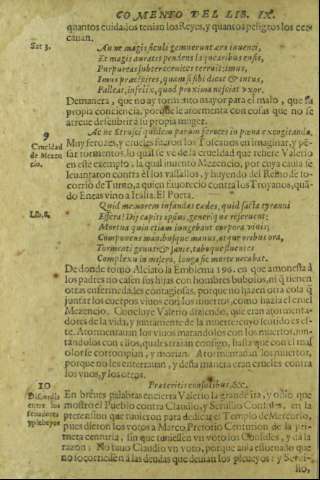 COMENTO DEL LIB. IX.
quantos cuidados tenian los Reyes, y quantos peligros los cer
cauan.
Sat 3.
An ne magis siculi gemuerunt æra iuuenci,
Et magis auratis pendens laquearibus ensis,
Purpureas subter ceruices terruit; imus,
Imus præcipites, quam si sibi dicat & intus,
Palleat, infelix, quod proxima nesciat vxor.
Demanera, que no ay tormento mayor para el malo, que su
propia conciencia, porque le atormenta con cosas que no se
atreue descubrir a su propia muger.
9
Crueldad de Mezencio.
Ac ne Etrusci quidem parum feroces in pœna excogitanda.
Muy ferozes, y crueles fueron los Toscanos en imaginar, y
tormentos, lo qual se ve de la crueldad que refiere Valerio
en este exemplo, la qual inuento Mezencio, por cuya causa se
leuantaron contra el los vassallos, y huyendo del Reino de
corrio de Turno, a quien fauorecio contra los Troyanos, quã-
do Eneas vino a Italia. El Poeta.
Lib. 8.
Quid memorem infandas cædes, quid facta tyranni
Effera? Dij capiti ipsius, generique reseruent:
Mortua quin etiam iungebat corpora viuis,
Componens manibusque manus, atque oribus ora,
Tormenti genus & sanie, taboque fluentes
Complexu in misero, longa sic morte necabat.
De donde tomo Alciato la Emblema 196. en que amonesta á
los padres no casen sus hijas con hombres bubosos, ni q̃ tienen
otras enfermedades contagiosas, porque no es otra cosa q̃
juntar los cuerpos viuos con los muertos, como hazia el cruel
Mezencio. Concluye Valerio diziendo, que eran atormenta-
dores de la vida, y juntamente de la muerte
te. Atormentauan los viuos matandolos con los muertos, jun-
tandolos con ellos, quales traian consigo, hasta que con el mal
olor se corrompian, y morian. Atormentauan los muertos,
porque no les enterrauan, y desta manera eran crueles contra
los viuos, y los otros.
10
Discordia entre los Senadores y plebeyos
Præteritis consulibus, &c.
En breues palabras encierra Valerio la grande ira, y odio que
mostro el Pueblo contra Claudio, y Seruilio Consules, en la
pretension que tuuieron para dedicar el Templo de Mercurio,
pues dieron los votos a Marco Pretorio Centurion de la pri-
mera centuria, sin que tuuiessen voto los Consules, y da la
razon: No tuuo Claudio voto, porque auia estoruado que
no socorriessen a las deudas que deuian los plebeyos: y Serui-
lio,